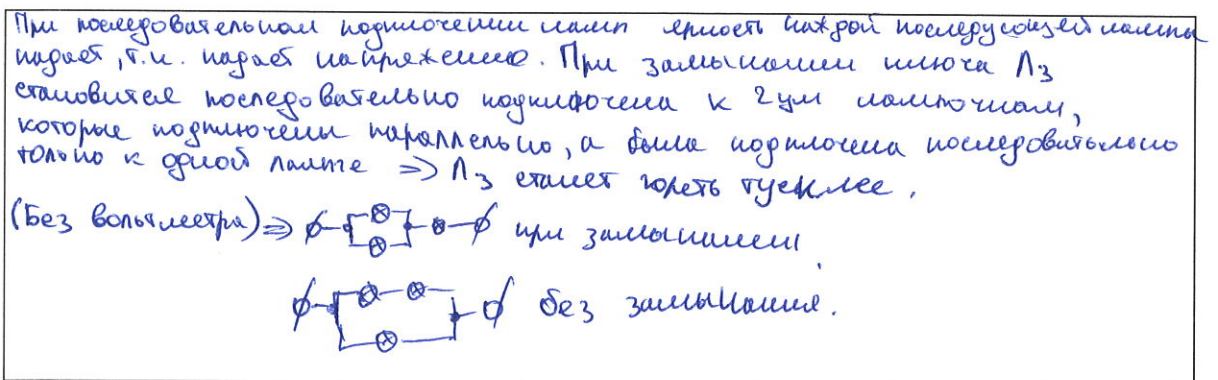 При последовательном подключении ламп яркость каждой последующей лампы
падает, т.к. падает напряжение. При замыкании ключа Л₃
становится последовательно подключена к 2ум лампочкам,
которые подключены параллельно, а была подключена последовательно
только к одной лампе => Л₃ станет гореть тусклее.
(Без вольтметра) => при замыкании
без замыкания.